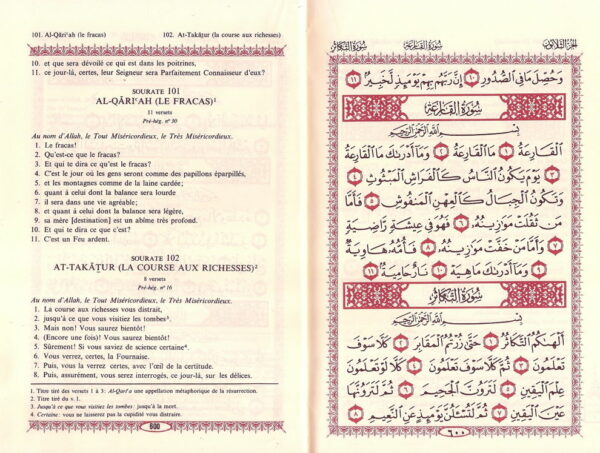 101. Al-Qāriʿah (le fracas) 102. At-Takāṯur (la course aux richesses)
10. et que sera dévoilé ce qui est dans les poitrines,
11. ce jour-là, certes, leur Seigneur sera Parfaitement Connaisseur d'eux?
SOURATE 101
AL-QĀRIʿAH (LE FRACAS)¹
11 versets
Pré-hég. n° 30
Au nom d'Allah, le Tout Miséricordieux, le Très Miséricordieux.
1. Le fracas!
2. Qu'est-ce que le fracas?
3. Et qui te dira ce qu'est le fracas?
4. C'est le jour où les gens seront comme des papillons éparpillés,
5. et les montagnes comme de la laine cardée;
6. quant à celui dont la balance sera lourde
7. il sera dans une vie agréable;
8. et quant à celui dont la balance sera légère,
9. sa mère [destination] est un abîme très profond.
10. Et qui te dira ce que c'est?
11. C'est un Feu ardent.
SOURATE 102
AT-TAKĀṮUR (LA COURSE AUX RICHESSES)²
8 versets
Pré-hég. n° 16
Au nom d'Allah, le Tout Miséricordieux, le Très Miséricordieux.
1. La course aux richesses vous distrait,
2. jusqu'à ce que vous visitiez les tombes³.
3. Mais non! Vous saurez bientôt!
4. (Encore une fois)! Vous saurez bientôt!
5. Sûrement! Si vous saviez de science certaine⁴.
6. Vous verrez, certes, la Fournaise.
7. Puis, vous la verrez certes, avec l'œil de la certitude.
8. Puis, assurément, vous serez interrogés, ce jour-là, sur les délices.
1. Titre tiré des versets 1 à 3: Al-Qariʿa une appellation métaphorique de la résurrection.
2. Titre tiré du v. 1.
3. Jusqu'à ce que vous visitiez les tombes: jusqu'à la mort.
4. Certaine: vous ne laisserez pas la cupidité vous distraire.
600
الجزء الثلاثون سورة القارعة سورة التكاثر
وَحُصِّلَ مَا فِي الصُّدُورِ ١٠ إِنَّ رَبَّهُم بِهِمْ يَوْمَئِذٍ لَّخَبِيرٌ ١١
سُورَةُ القَارِعَةِ
بِسْمِ اللَّهِ الرَّحْمَنِ الرَّحِيمِ
الْقَارِعَةُ ١ مَا الْقَارِعَةُ ٢ وَمَا أَدْرَاكَ مَا الْقَارِعَةُ
٣ يَوْمَ يَكُونُ النَّاسُ كَالْفَرَاشِ الْمَبْثُوثِ ٤
وَتَكُونُ الْجِبَالُ كَالْعِهْنِ الْمَنفُوشِ ٥ فَأَمَّا
مَن ثَقُلَتْ مَوَازِينُهُ ٦ فَهُوَ فِي عِيشَةٍ رَّاضِيَةٍ
٧ وَأَمَّا مَنْ خَفَّتْ مَوَازِينُهُ ٨ فَأُمُّهُ هَاوِيَةٌ
٩ وَمَا أَدْرَاكَ مَا هِيَهْ ١٠ نَارٌ حَامِيَةٌ ١١
سُورَةُ التَّكَاثُرِ
بِسْمِ اللَّهِ الرَّحْمَنِ الرَّحِيمِ
أَلْهَاكُمُ التَّكَاثُرُ ١ حَتَّى زُرْتُمُ الْمَقَابِرَ ٢ كَلَّا سَوْفَ
تَعْلَمُونَ ٣ ثُمَّ كَلَّا سَوْفَ تَعْلَمُونَ ٤ كَلَّا لَوْ تَعْلَمُونَ
عِلْمَ الْيَقِينِ ٥ لَتَرَوُنَّ الْجَحِيمَ ٦ ثُمَّ لَتَرَوُنَّهَا
عَيْنَ الْيَقِينِ ٧ ثُمَّ لَتُسْأَلُنَّ يَوْمَئِذٍ عَنِ النَّعِيمِ ٨
٦٠٠